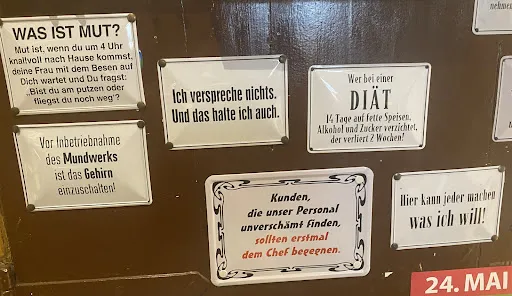 WAS IST MUT?
Mut ist, wenn du um 4 Uhr
knallvoll nach Hause kommst,
deine Frau mit dem Besen auf
Dich wartet und Du fragst:
„Bist du am putzen oder
fliegst du noch weg“?
Ich verspreche nichts.
Und das halte ich auch.
Wer bei einer
DIÄT
14 Tage auf fette Speisen,
Alkohol und Zucker verzichtet,
der verliert 2 Wochen!
Vor Inbetriebnahme
des Mundwerks
ist das Gehirn
einzuschalten!
Kunden,
die unser Personal
unverschämt finden,
sollten erstmal
dem Chef begegnen.
Hier kann jeder machen
was ich will!
24. MAI